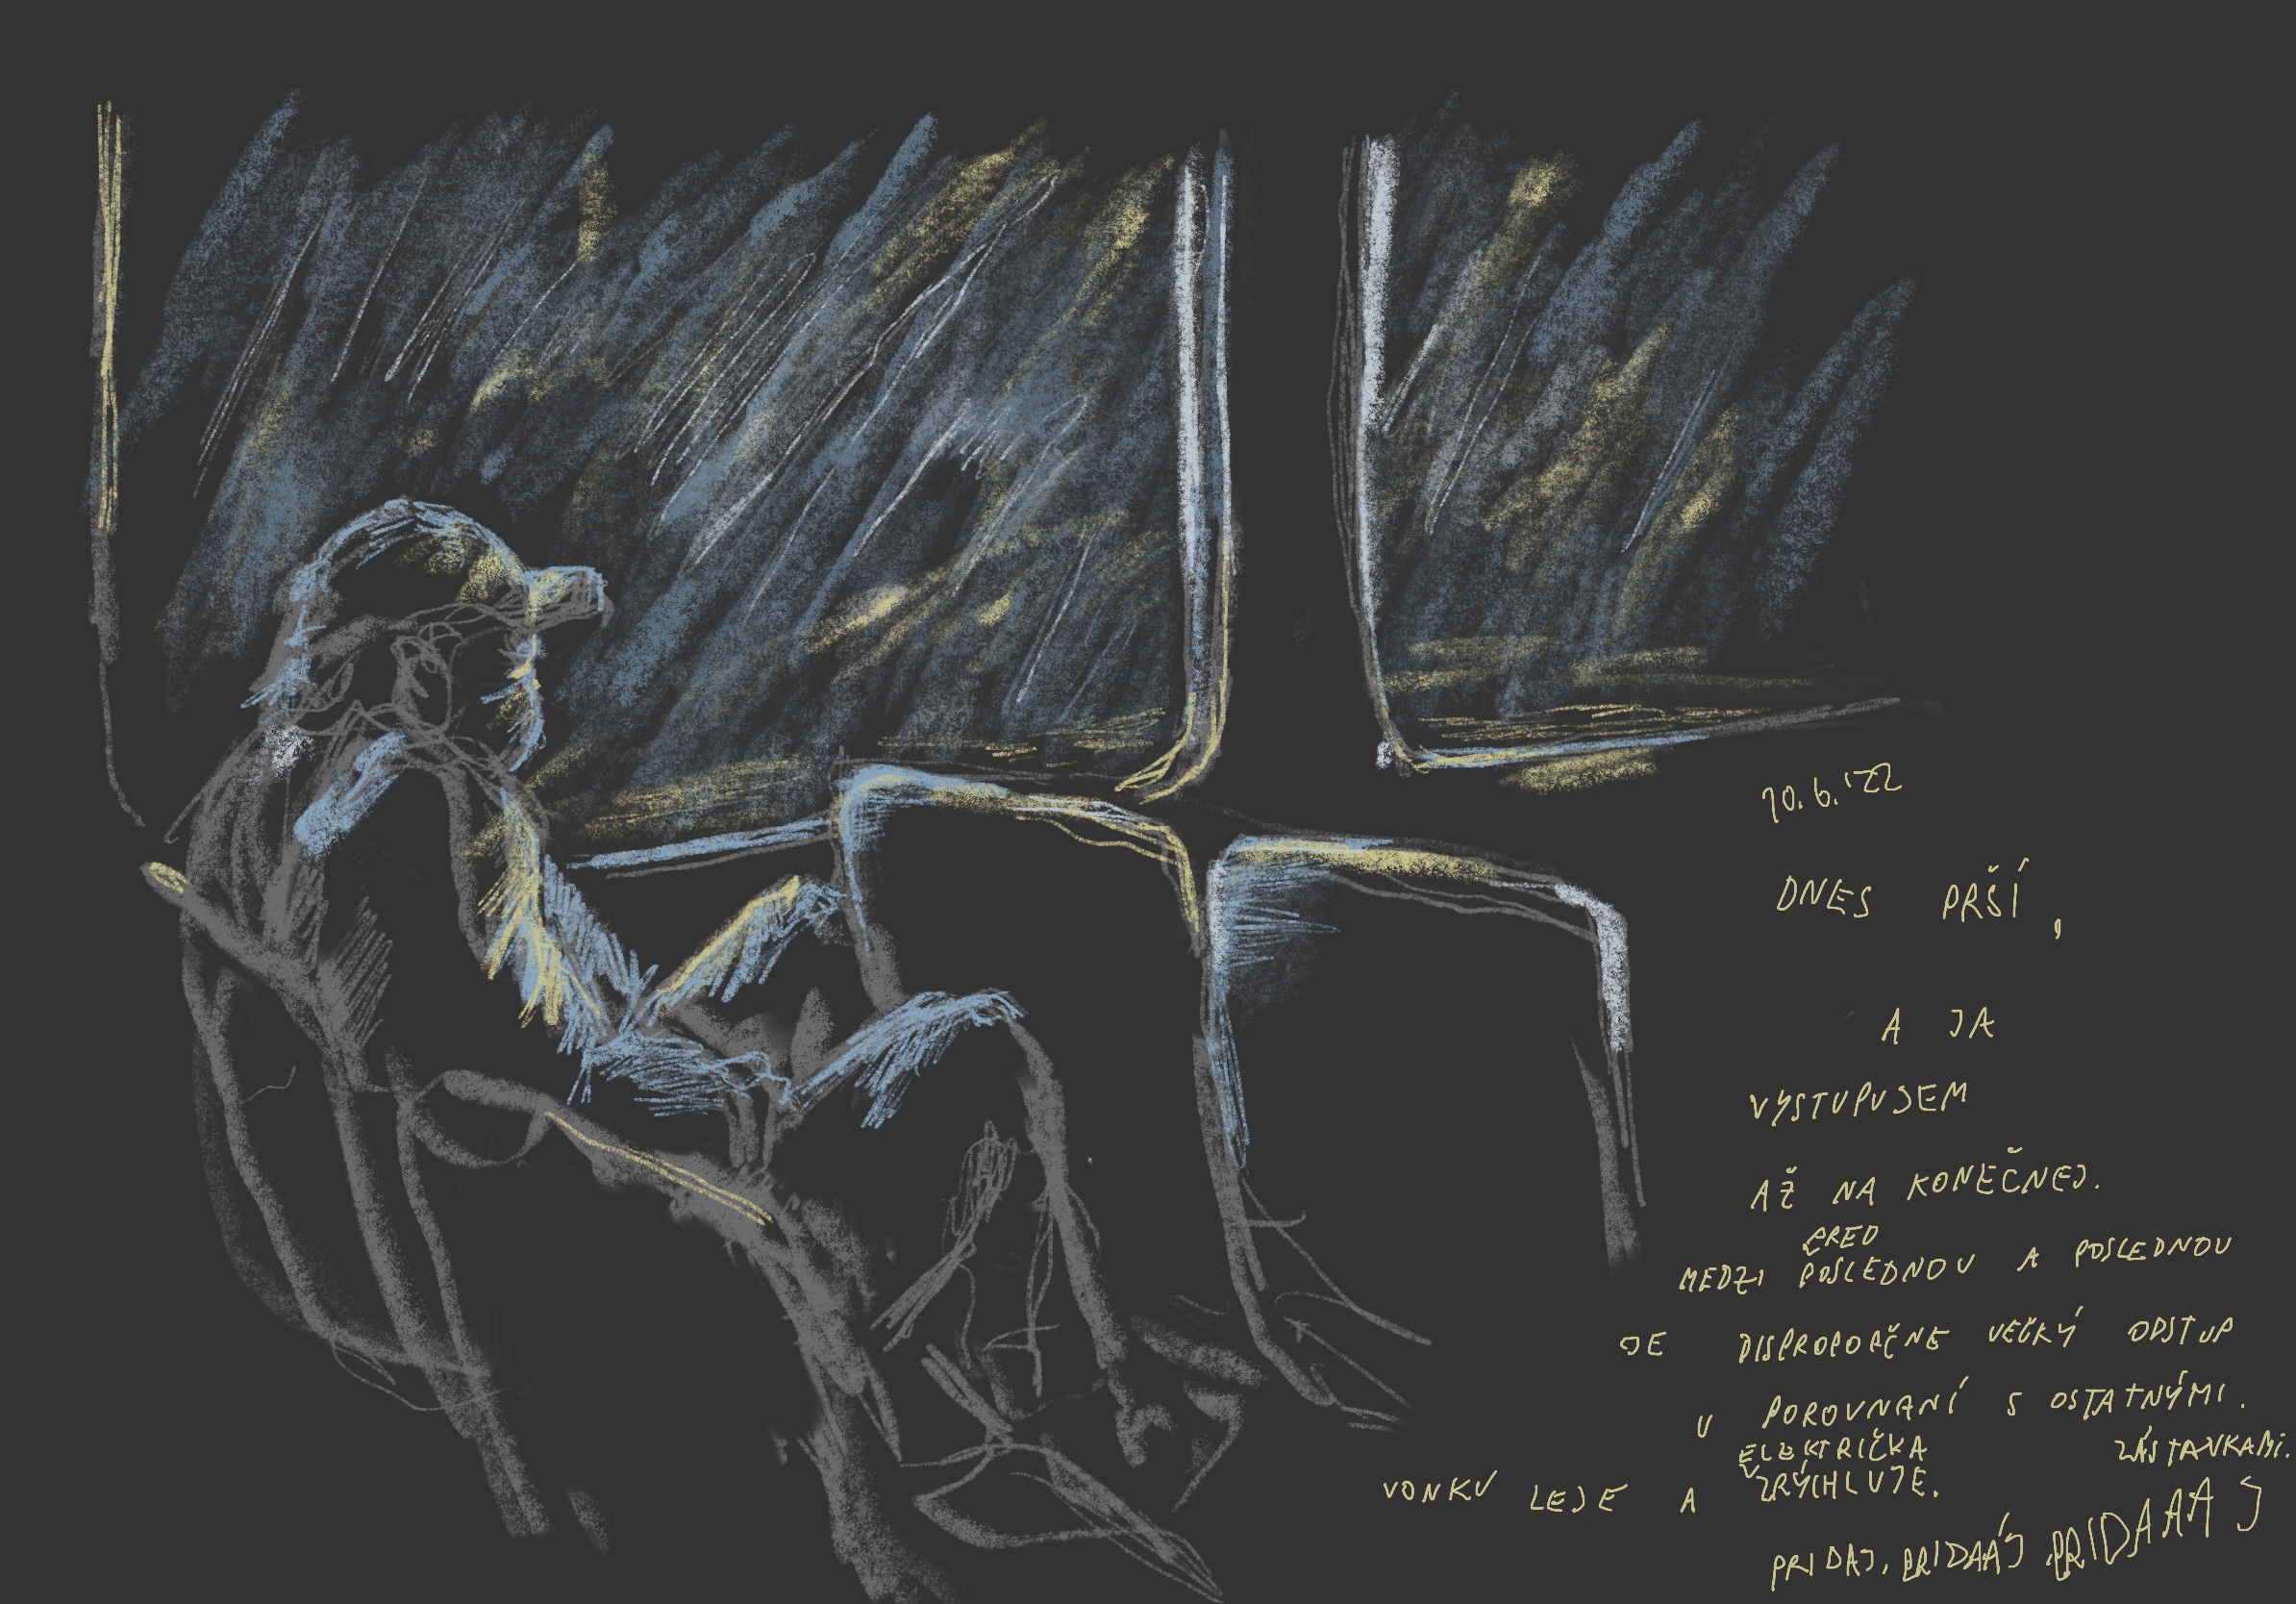 10.6.'22
DNES PRŠÍ,
A JA
VYSTUPUJEM
AŽ NA KONEČNEJ.
PRED
MEDZI POSLEDNOU A POSLEDNOU
JE DISPROPORČNE VEĽKÝ ODSTUP
V POROVNANÍ S OSTATNÝMI.
ZÁSTAVKAMI.
ELEKTRIČKA
VONKU LEJE A ZRÝCHĽUJE.
PRIDAJ, PRIDAÁJ PRIDAAAJ